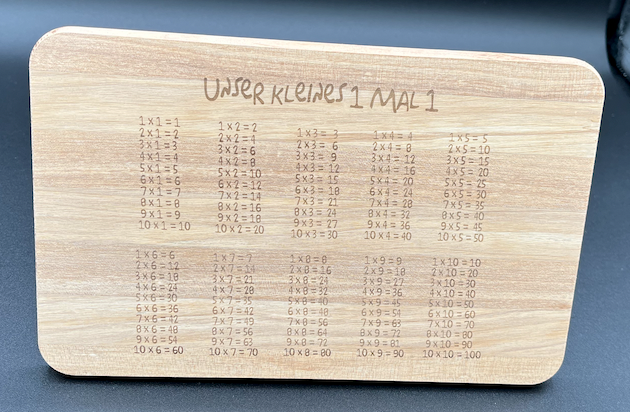 UNSER KLEINES 1 MAL 1
1 x 1 = 1
2 x 1 = 2
3 x 1 = 3
4 x 1 = 4
5 x 1 = 5
6 x 1 = 6
7 x 1 = 7
8 x 1 = 8
9 x 1 = 9
10 x 1 = 10
1 x 2 = 2
2 x 2 = 4
3 x 2 = 6
4 x 2 = 8
5 x 2 = 10
6 x 2 = 12
7 x 2 = 14
8 x 2 = 16
9 x 2 = 18
10 x 2 = 20
1 x 3 = 3
2 x 3 = 6
3 x 3 = 9
4 x 3 = 12
5 x 3 = 15
6 x 3 = 18
7 x 3 = 21
8 x 3 = 24
9 x 3 = 27
10 x 3 = 30
1 x 4 = 4
2 x 4 = 8
3 x 4 = 12
4 x 4 = 16
5 x 4 = 20
6 x 4 = 24
7 x 4 = 28
8 x 4 = 32
9 x 4 = 36
10 x 4 = 40
1 x 5 = 5
2 x 5 = 10
3 x 5 = 15
4 x 5 = 20
5 x 5 = 25
6 x 5 = 30
7 x 5 = 35
8 x 5 = 40
9 x 5 = 45
10 x 5 = 50
1 x 6 = 6
2 x 6 = 12
3 x 6 = 18
4 x 6 = 24
5 x 6 = 30
6 x 6 = 36
7 x 6 = 42
8 x 6 = 48
9 x 6 = 54
10 x 6 = 60
1 x 7 = 7
2 x 7 = 14
3 x 7 = 21
4 x 7 = 28
5 x 7 = 35
6 x 7 = 42
7 x 7 = 49
8 x 7 = 56
9 x 7 = 63
10 x 7 = 70
1 x 8 = 8
2 x 8 = 16
3 x 8 = 24
4 x 8 = 32
5 x 8 = 40
6 x 8 = 48
7 x 8 = 56
8 x 8 = 64
9 x 8 = 72
10 x 8 = 80
1 x 9 = 9
2 x 9 = 18
3 x 9 = 27
4 x 9 = 36
5 x 9 = 45
6 x 9 = 54
7 x 9 = 63
8 x 9 = 72
9 x 9 = 81
10 x 9 = 90
1 x 10 = 10
2 x 10 = 20
3 x 10 = 30
4 x 10 = 40
5 x 10 = 50
6 x 10 = 60
7 x 10 = 70
8 x 10 = 80
9 x 10 = 90
10 x 10 = 100